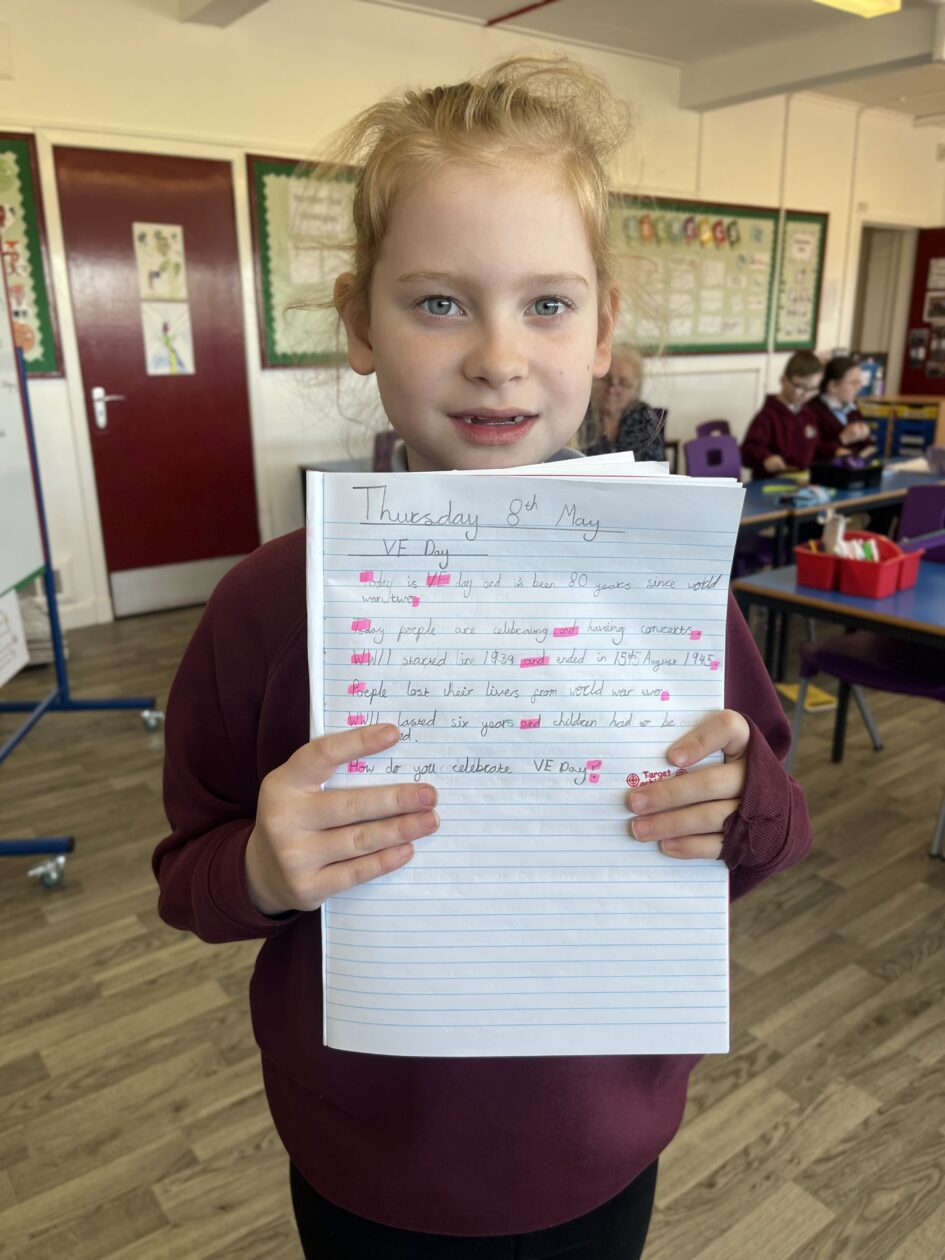 Thursday 8th May
VE Day
Today is VE day and it been 80 years since world
war two.
Today poeple are celebraing and having concerts.
WWII started in 1939 and ended in 15th August 1945.
Poeple lost their livers from world war two.
WWII lasted six years and children had to be
How do you celebrate VE Day?
Target